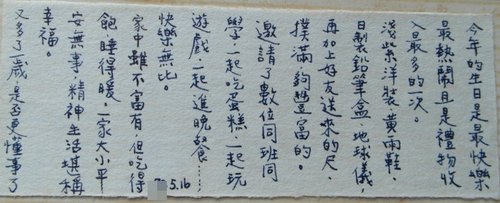 今年的生日是最快樂
最熱鬧且是禮物收
入最多的一次。
淺紫洋裝、黃雨鞋、
日製鉛筆盒、地球儀，
再加上好友送來的尺、
撲滿夠豐富的。
邀請了數位同班同
學，一起吃蛋糕，一起玩
遊戲，一起進晚餐……
快樂無比。
家中雖不富有，但吃得
飽，睡得暖，一家大小平
安無事，精神生活堪稱
幸福。
又多了一歲，是否更懂事了
5.16